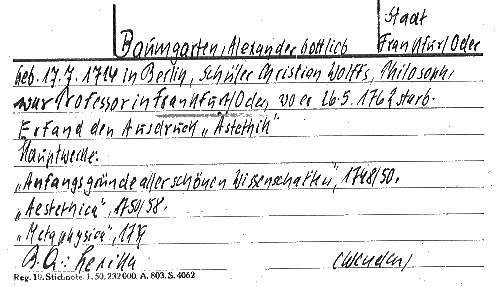 Stadt
Baumgarten, Alexander Gottlieb Frankfurt/Oder
geb. 17.7.1714 in Berlin, Schüler Christian Wolffs, Philosoph,
war Professor in Frankfurt/Oder, wo er 26.5.1762 starb.
Erfand den Ausdruck „Ästethik"
Hauptwerke:
„Anfangsgründe aller schönen Wissenschaften", 1748/50.
„Aesthetica", 1750/58.
„Metaphysica",
B.Q.: Lexika (wenden)
Reg. 10. Stichnote. 1. 50. 232000. A. 803. S. 4062